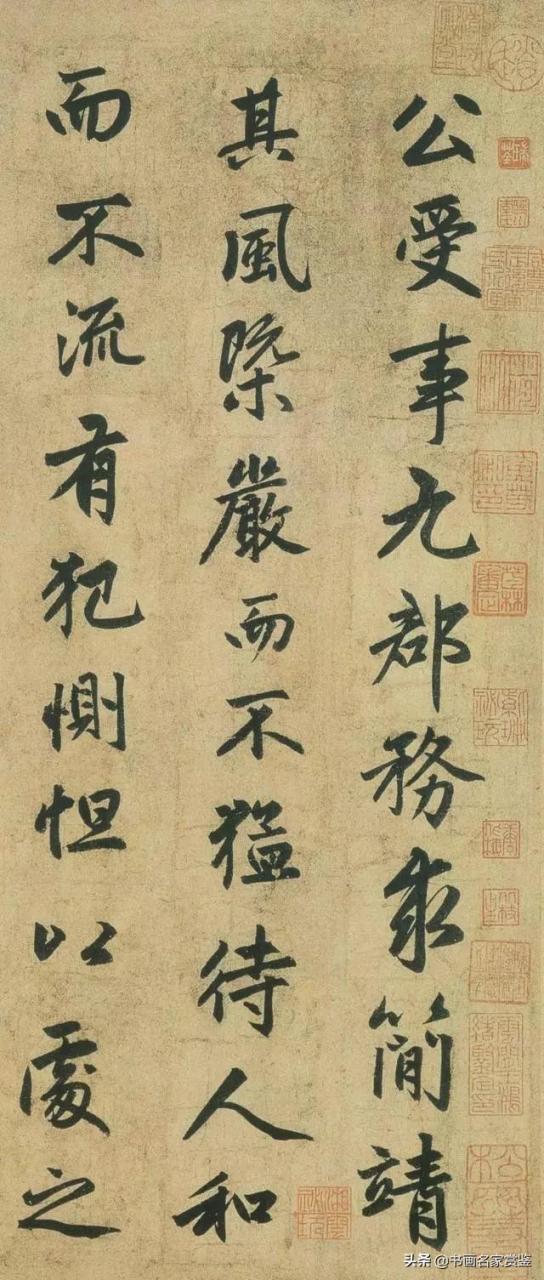 公受事九郡務求簡靖
其風槩嚴而不猛待人和
而不流有犯惻怛以處之
头条 @书画名家赏鉴